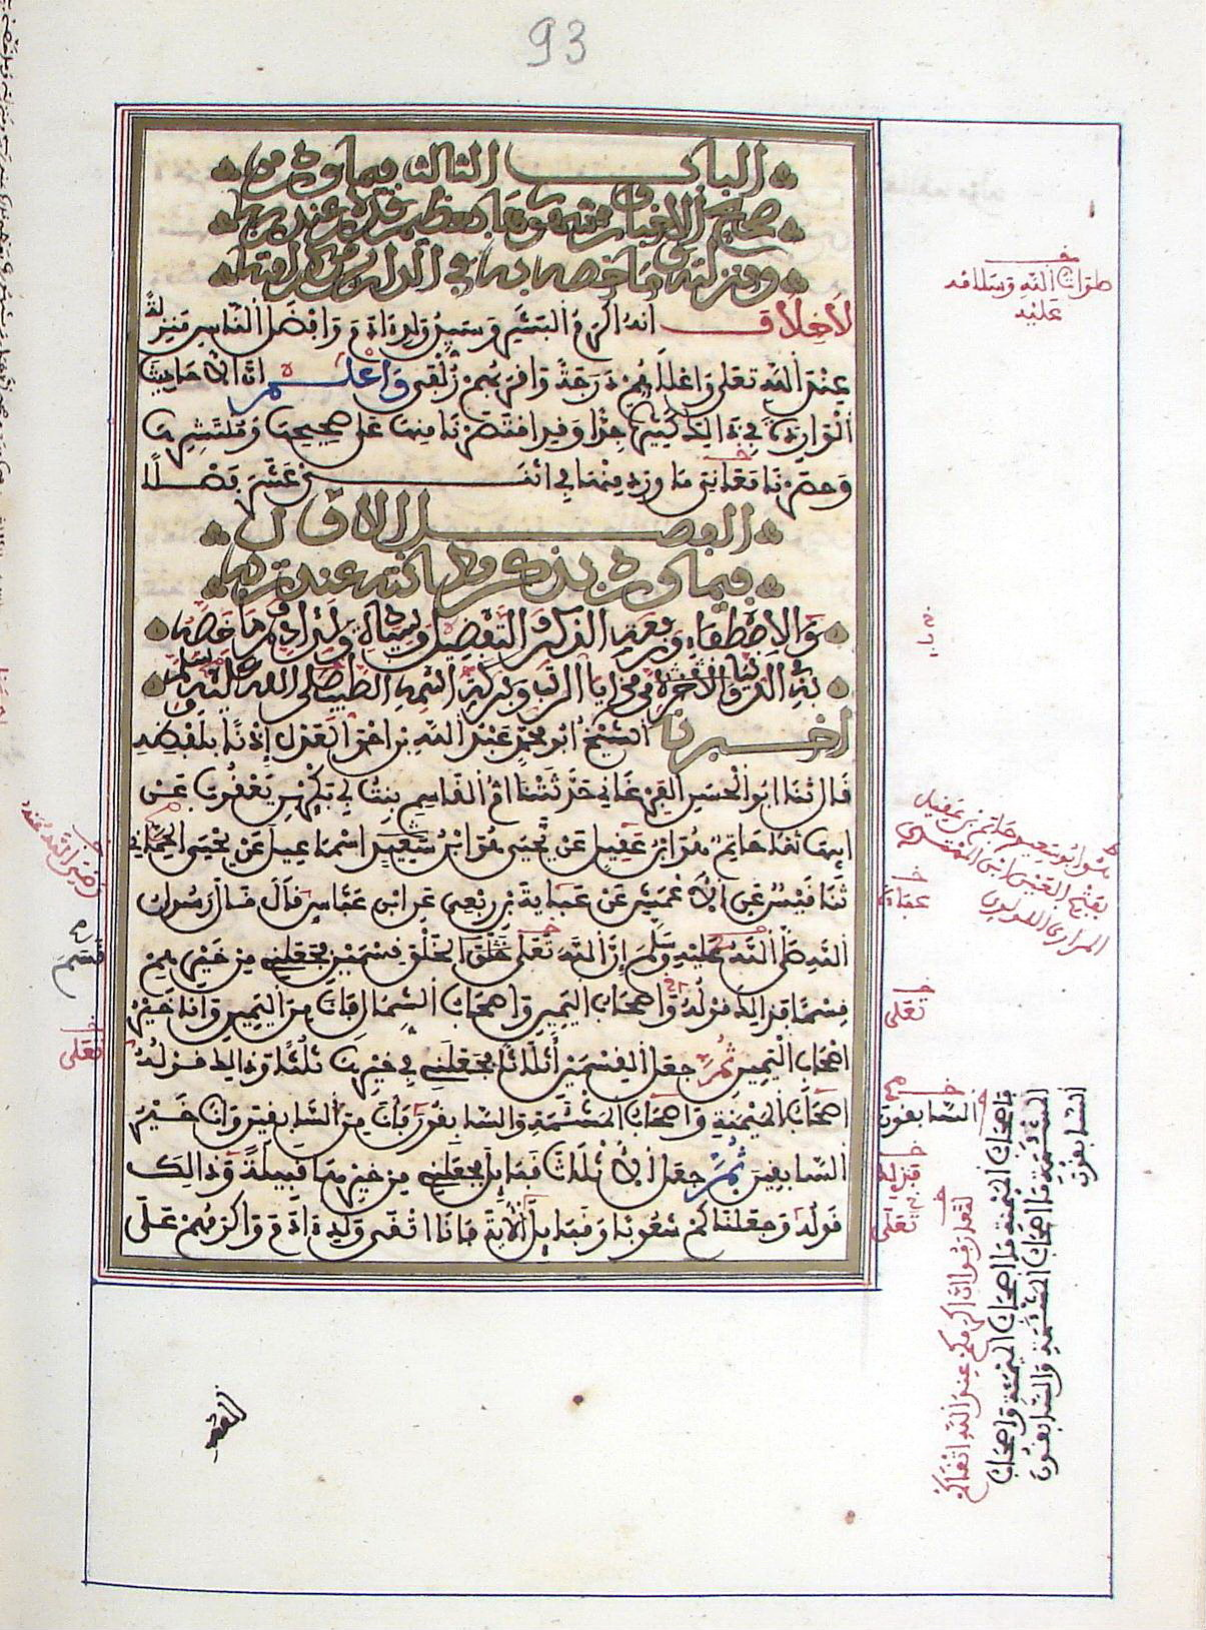 93
الباب الثالث فيما ورد من
صحيح الاخبار ومشهورها بعظيم قدره عند ربه
ومنزلته وما خصه به في الدارين من كرامته
لا خلاف انه اكرم البشر وسيد ولد ءادم وافضل الناس منزلة
عند الله تعلى واعلاهم درجة واقربهم زلفى واعلم ان الاحاديث
الواردة في ذالك كثيرة جدا وقد اقتصرنا منها على صحيحها ومنتشرها
وحصرنا معاني ما ورد منها في اثنى عشر فصلا
الفصل الاول
فيما ورد بذكر مكانته عند ربه
والاصطفاء ورفعة الذكر والتفضيل وسيادة ولد ادم وما خصه
به في الدنيا والاخرة من مزايا الرتب وبركة اسمه الطيب صلى الله عليه وسلم
اخبرنا الشيخ ابو محمد عبد الله بن احمد العدل إذنا بلفظه
قال ثنا ابو الحسين الفرغاني حدثتنا ام القاسم بنت ابي بكر بن يعقوب عن
ابيها ثنا حاتم هو ابن عقيل عن يحيى هو ابن اسماعيل عن يحيى الحماني
ثنا قيس عن الاعمش عن عباية بن ربعي عن ابن عباس قال قال رسول
الله صلى الله عليه وسلم إن الله تعلى خلق الخلق قسمين فجعلني من خيرهم
قسما فذالك قوله واصحاب اليمين واصحاب الشمال فانا من اليمين وانا خير
اصحاب اليمين ثم جعل القسمين أثلاثا فجعلني في خيرها ثلثا وذالك قوله
اصحاب الميمنة واصحاب المشئمة والسابقون فانا من السابقين وانا خير
السابقين ثم جعل الاثلاث قبايل فجعلني من خيرها قبيلة وذالك
قوله وجعلناكم شعوبا وقبايل الاية فانا اتقى ولد ءادم واكرمهم على
صلوات الله وسلامه
عليه
هو ابو سعيد حاتم بن عقيل
عباية
تعلى
السابقون
فاصحاب الميمنة ما اصحاب الميمنة واصحاب
المشئمة ما اصحاب المشئمة والسابقون
السابقون
تعلى
لتعارفوا ان اكرمكم عند الله اتقاكم
رضي الله عنه
قسم
تعلى
الله